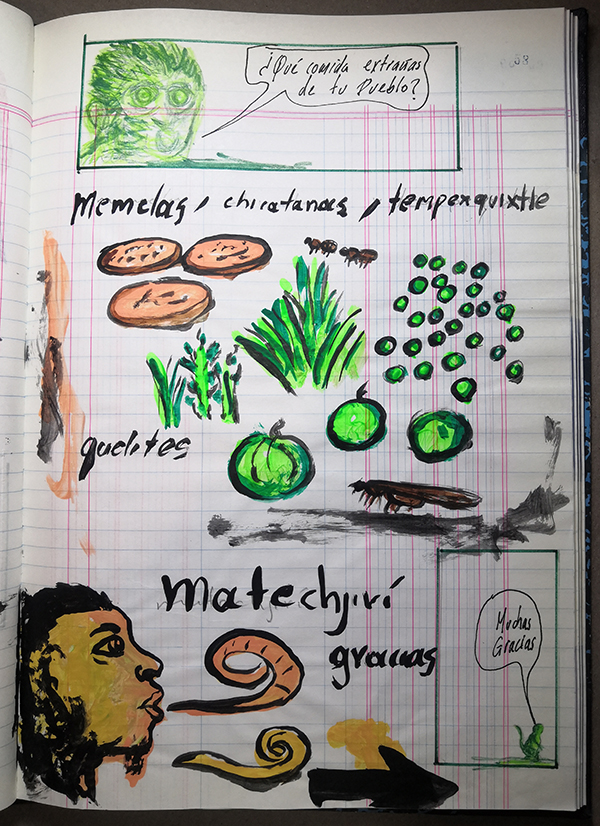 ¿Qué comida extrañas
de tu Pueblo?
Memelas, chicatanas, tempexquixtle
quelites
Matechjirí
gracias
Muchas
Gracias